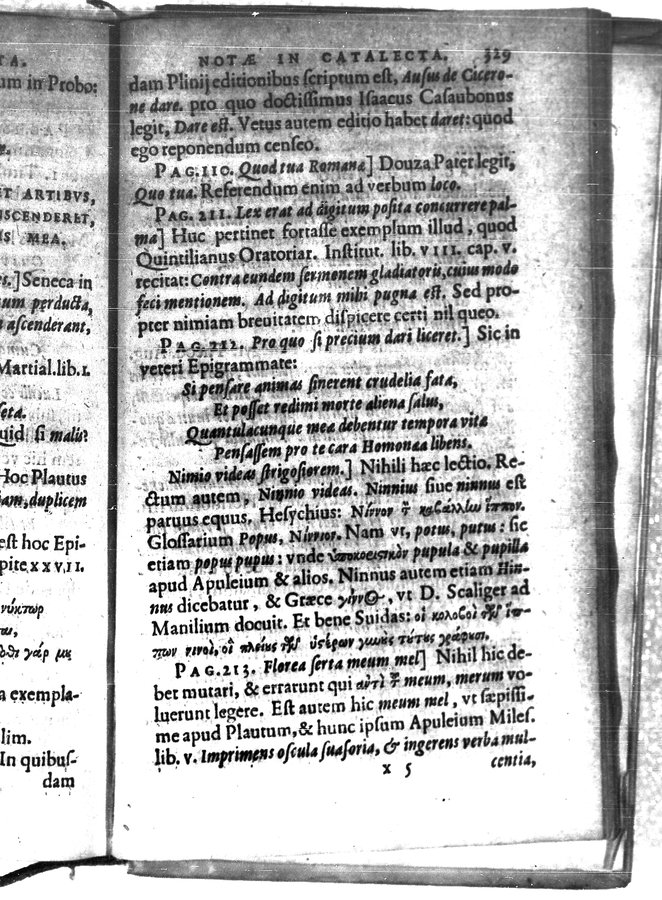 TA.
um in Probo:
ET ARTIBVS,
SCENDERET,
IS MEA.
es.] Seneca in
sum perducta,
n ascenderant,
Martial. lib. 1.
seta.
quid si malis?
Hoc Plautus
iam, duplicem
est hoc Epi-
pite XXVII.
νύκτωρ
γάρ με
a exempla-
lim.
In quibus-
dam
NOTÆ IN CATALECTA. 329
dam Plinij editionibus scriptum est, Ausus de Cicero-
ne dare. pro quo doctissimus Isaacus Casaubonus
legit, Dare est. Vetus autem editio habet daret: quod
ego reponendum censeo.
PAG. 110. Quod tua Romanæ] Douza Pater legit,
Quo tua. Referendum enim ad verbum loco.
PAG. 211. Lex erat ad digitum posita concurrere pal-
ma] Huc pertinet fortasse exemplum illud, quod
Quintilianus Oratoriar. Institut. lib. VIII. cap. V.
recitat: Contra eundem sermonem gladiatoris, cuius modo
feci mentionem. Ad digitum mihi pugna est. Sed pro-
pter nimiam breuitatem dispicere certi nil queo.
PAG. 212. Pro quo si precium dari liceret.] Sic in
veteri Epigrammate:
Si pensare animas sinerent crudelia fata,
Et posset redimi morte aliena salus,
Quantulacunque mea debentur tempora vita
Pensassem pro te cara Homonœa libens.
Nimio videas strigosiorem.] Nihili hæc lectio. Re-
ctum autem, Ninnio videas. Ninnius siue ninnus est
paruus equus. Hesychius: Νίννον τ̀ καβάλλην ἵππον.
Glossarium Popus, Νίννιον. Nam vt, potus, putus: sic
etiam popus pupus: vnde ὑποκοριστικὸν pupula & pupilla
apud Apuleium & alios. Ninnus autem etiam Hin-
nus dicebatur, & Græce γίννος, vt D. Scaliger ad
Manilium docuit. Et bene Suidas: οἱ κολοβοὶ τῶν ἵπ-
πων γιννοι, οἱ
PAG. 213. Florea serta meum mel] Nihil hic de-
bet mutari, & errarunt qui αὐτὶ τ̃ meum, merum vo-
luerunt legere. Est autem hic meum mel, vt sæpissi-
me apud Plautum, & hunc ipsum Apuleium Miles.
lib. V. Imprimens oscula suasoria, & ingerens verba mul-
X 5 centia,